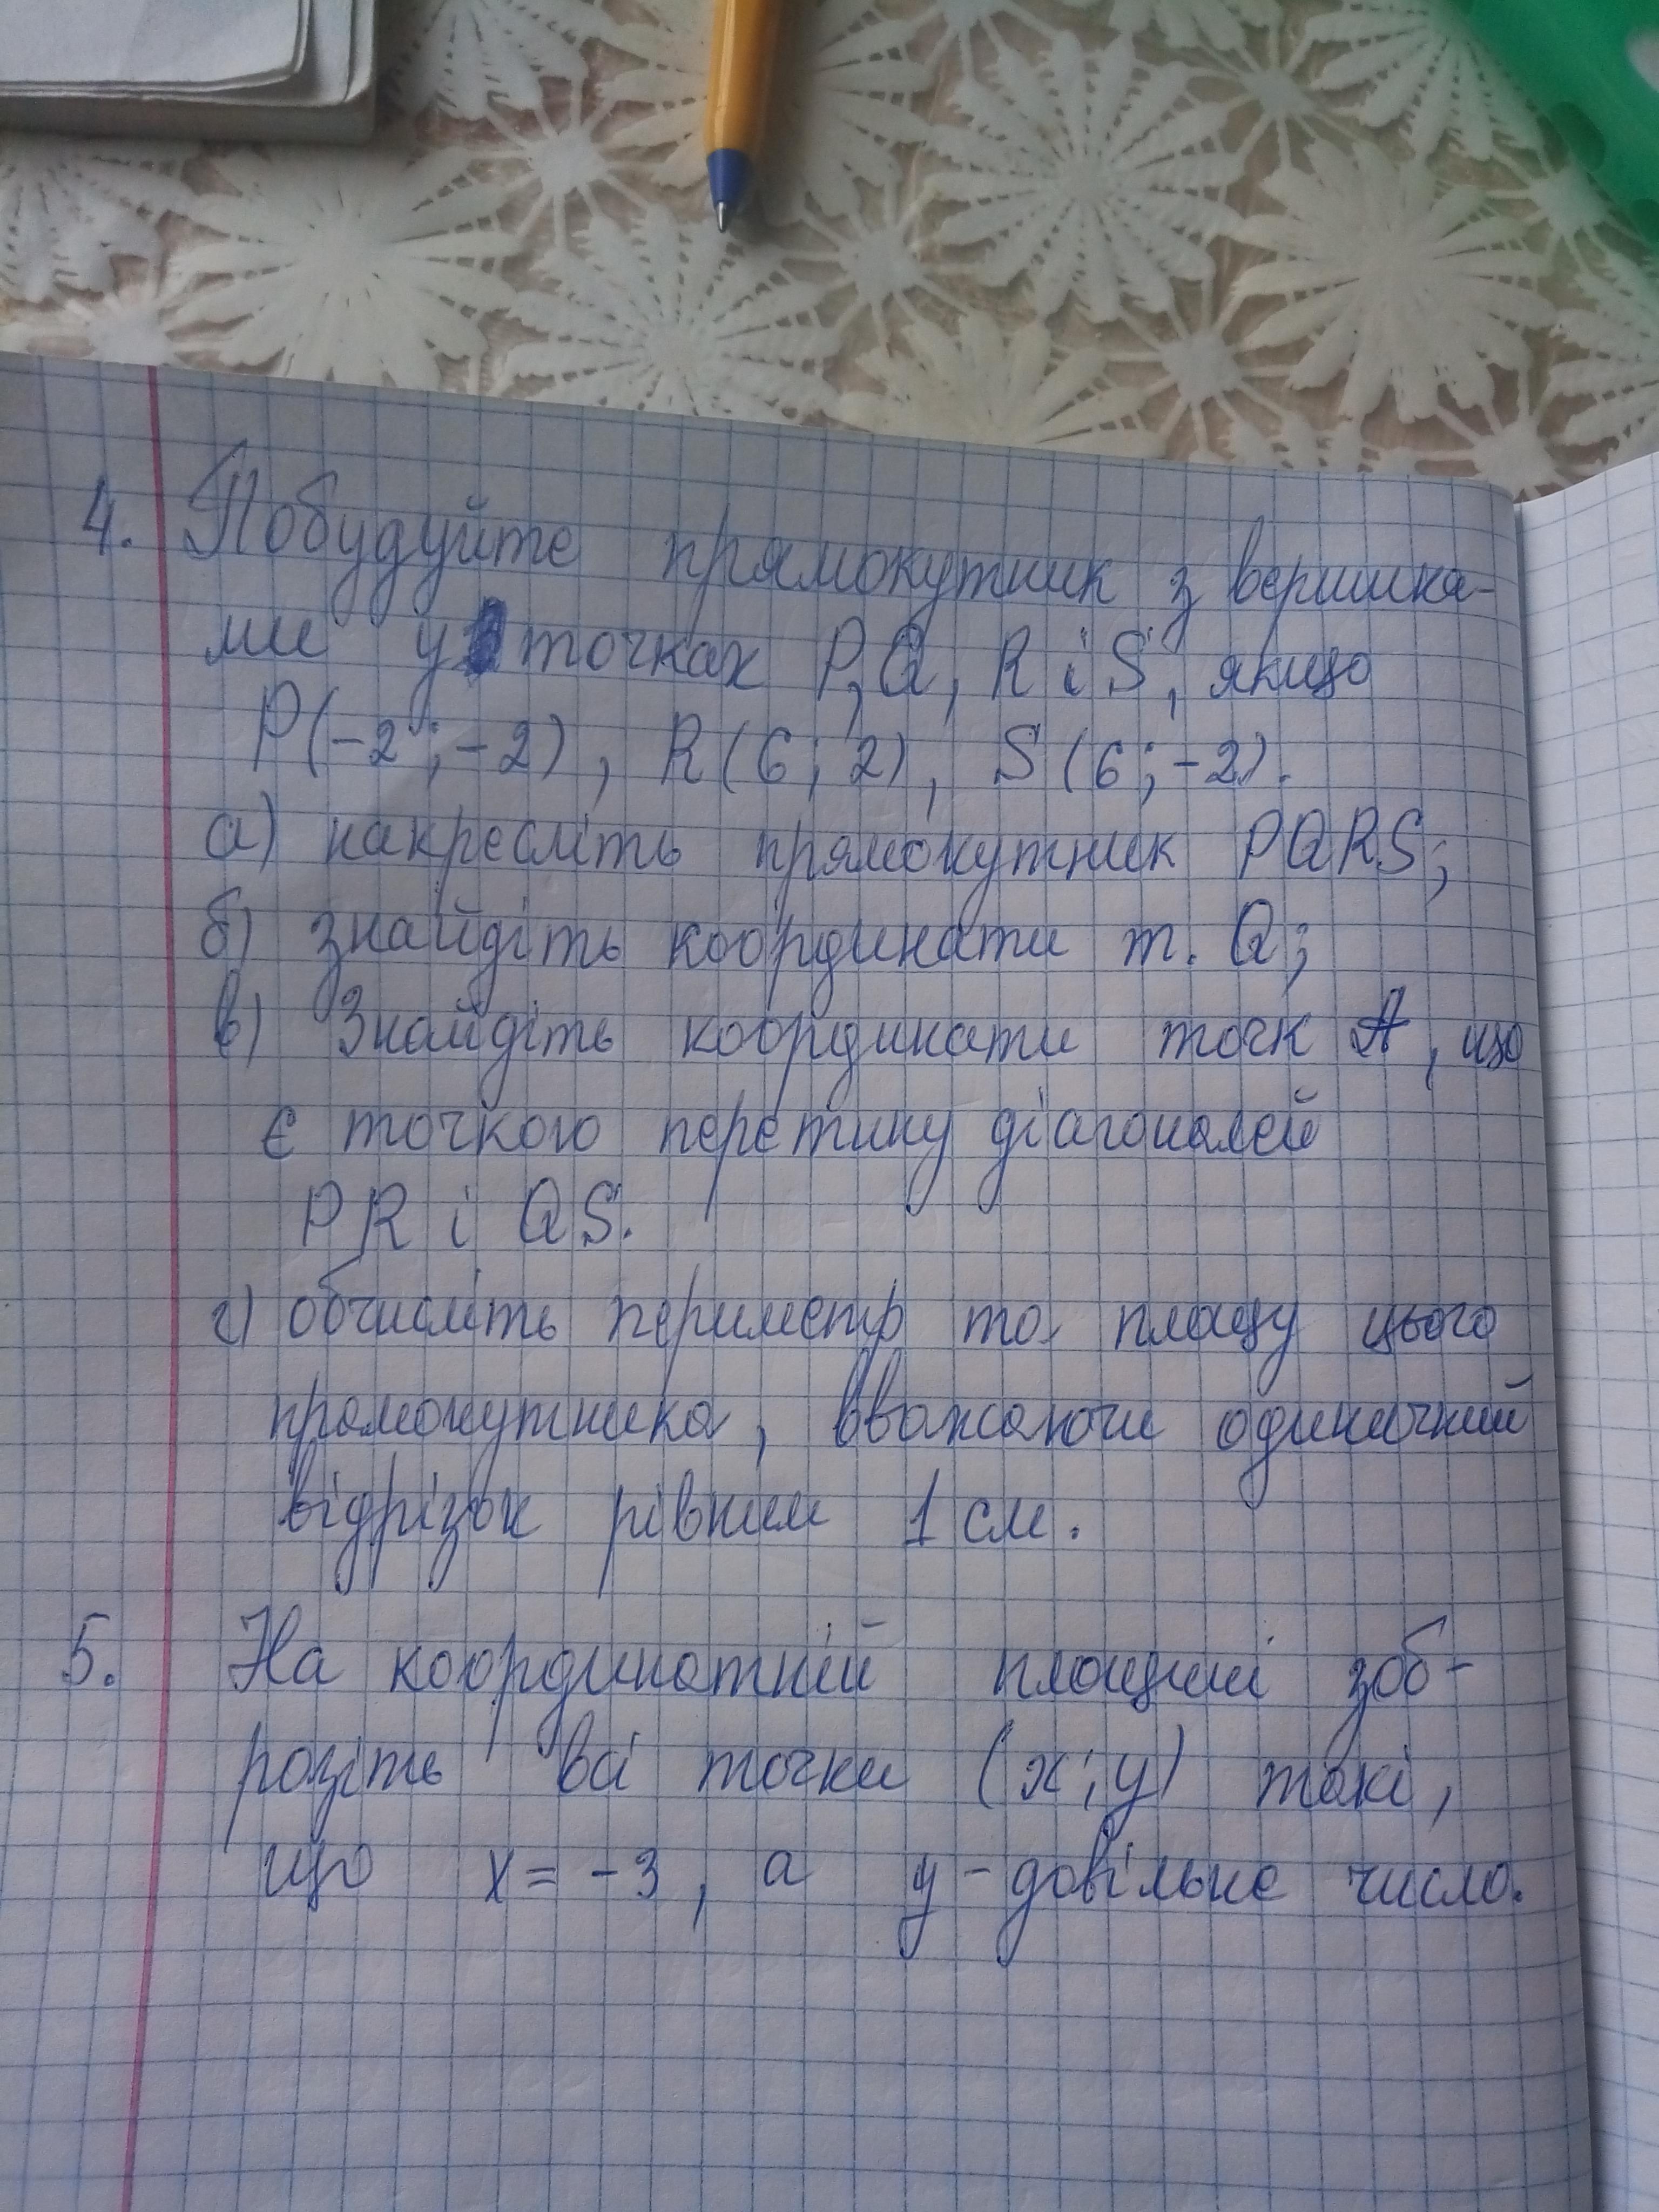 4. Побудуйте прямокутник з вершина-
ми у точках P, Q, R і S, якщо
P(-2; -2), R(6; 2), S(6; -2).
а) накресліть прямокутник PQRS;
б) знайдіть координати т. Q;
в) Знайдіть координати точк A, що
є точкою перетину діагоналей
PR і QS.
г) обчисліть периметр та площу цього
прямокутника, вважаючи одиничний
відрізок рівним 1 см.
5. На координатній площині зоб-
разіть всі точки (x; y) такі,
що x = -3, а y - довільне число.